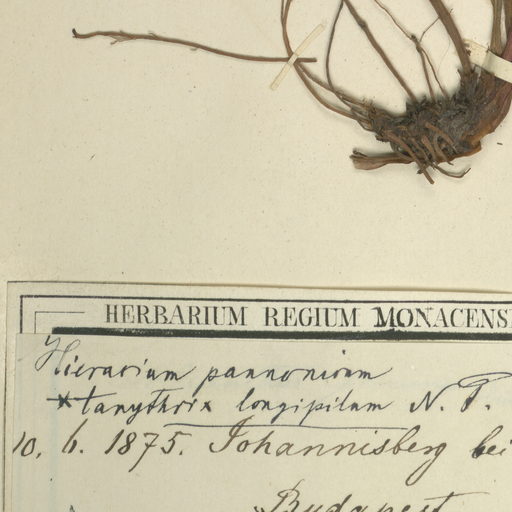 HERBARIUM REGIUM MONACENS
Hieracium pannonicum
* tanythrix longipilum N. P.
10. 6. 1875. Johannisberg bei
Budapest